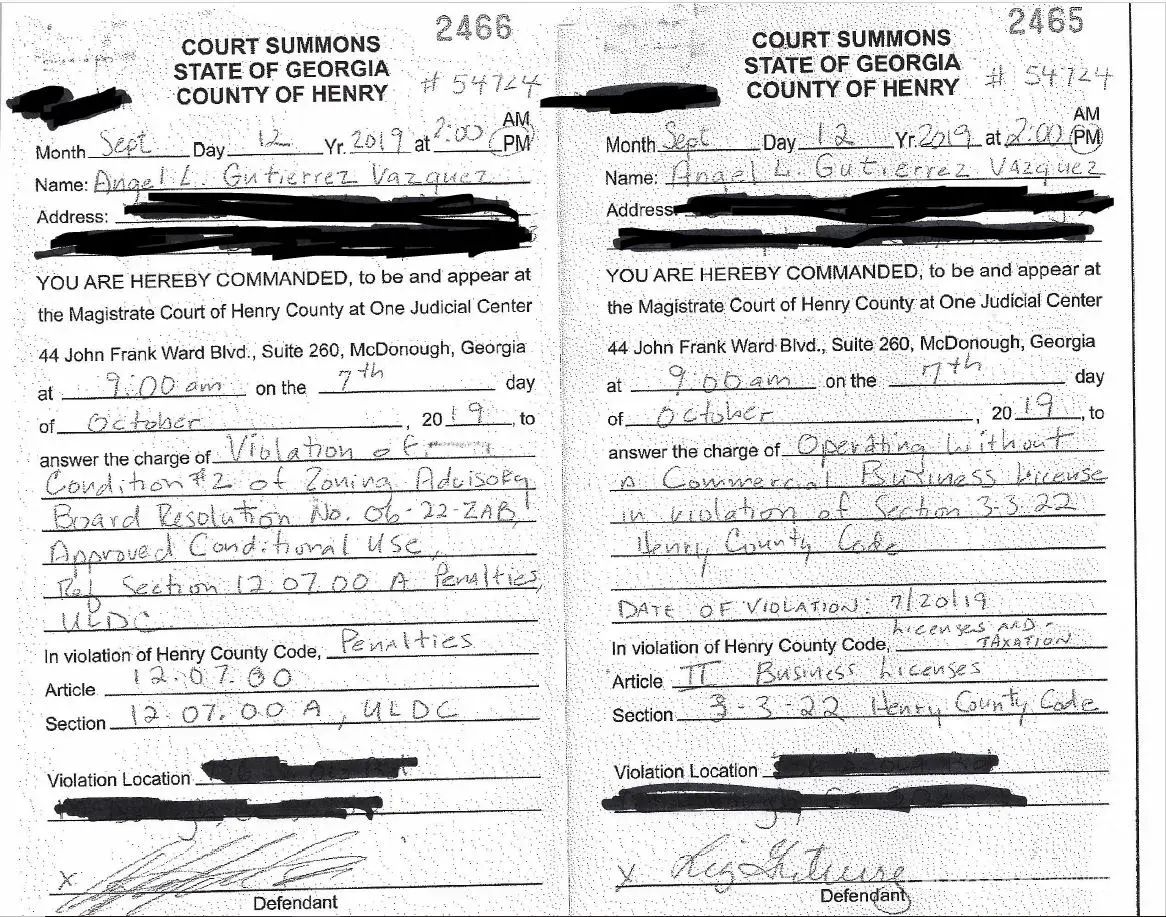 2466
COURT SUMMONS
STATE OF GEORGIA
COUNTY OF HENRY
# 54724
AM
Month Sept Day 12 Yr. 2019 at 2:00 PM
Name: Angel L. Gutierrez Vazquez
Address:
YOU ARE HEREBY COMMANDED, to be and appear at
the Magistrate Court of Henry County at One Judicial Center
44 John Frank Ward Blvd., Suite 260, McDonough, Georgia
at 9:00 am on the 7th day
of October, 2019, to
answer the charge of Violation of
Condition #2 of Zoning Advisory
Board Resolution No. 06-22-ZAB,
Approved Conditional Use,
Ref Section 12.07.00 A Penalties,
ULDC
In violation of Henry County Code, Penalties
Article 12.07.00
Section 12.07.00 A, ULDC
Violation Location
X
Defendant
2465
COURT SUMMONS
STATE OF GEORGIA
COUNTY OF HENRY
# 54724
AM
Month Sept Day 12 Yr. 2019 at 2:00 PM
Name: Angel L. Gutierrez Vazquez
Address
YOU ARE HEREBY COMMANDED, to be and appear at
the Magistrate Court of Henry County at One Judicial Center
44 John Frank Ward Blvd., Suite 260, McDonough, Georgia
at 9:00 am on the 7th day
of October, 2019, to
answer the charge of Operating Without
a Commercial Business License
in violation of Section 3-3-22
Henry County Code
DATE OF VIOLATION: 7/20/19
In violation of Henry County Code, Licenses AND TAXATION
Article II Business Licenses
Section 3-3-22 Henry County Code
Violation Location
X
Defendant